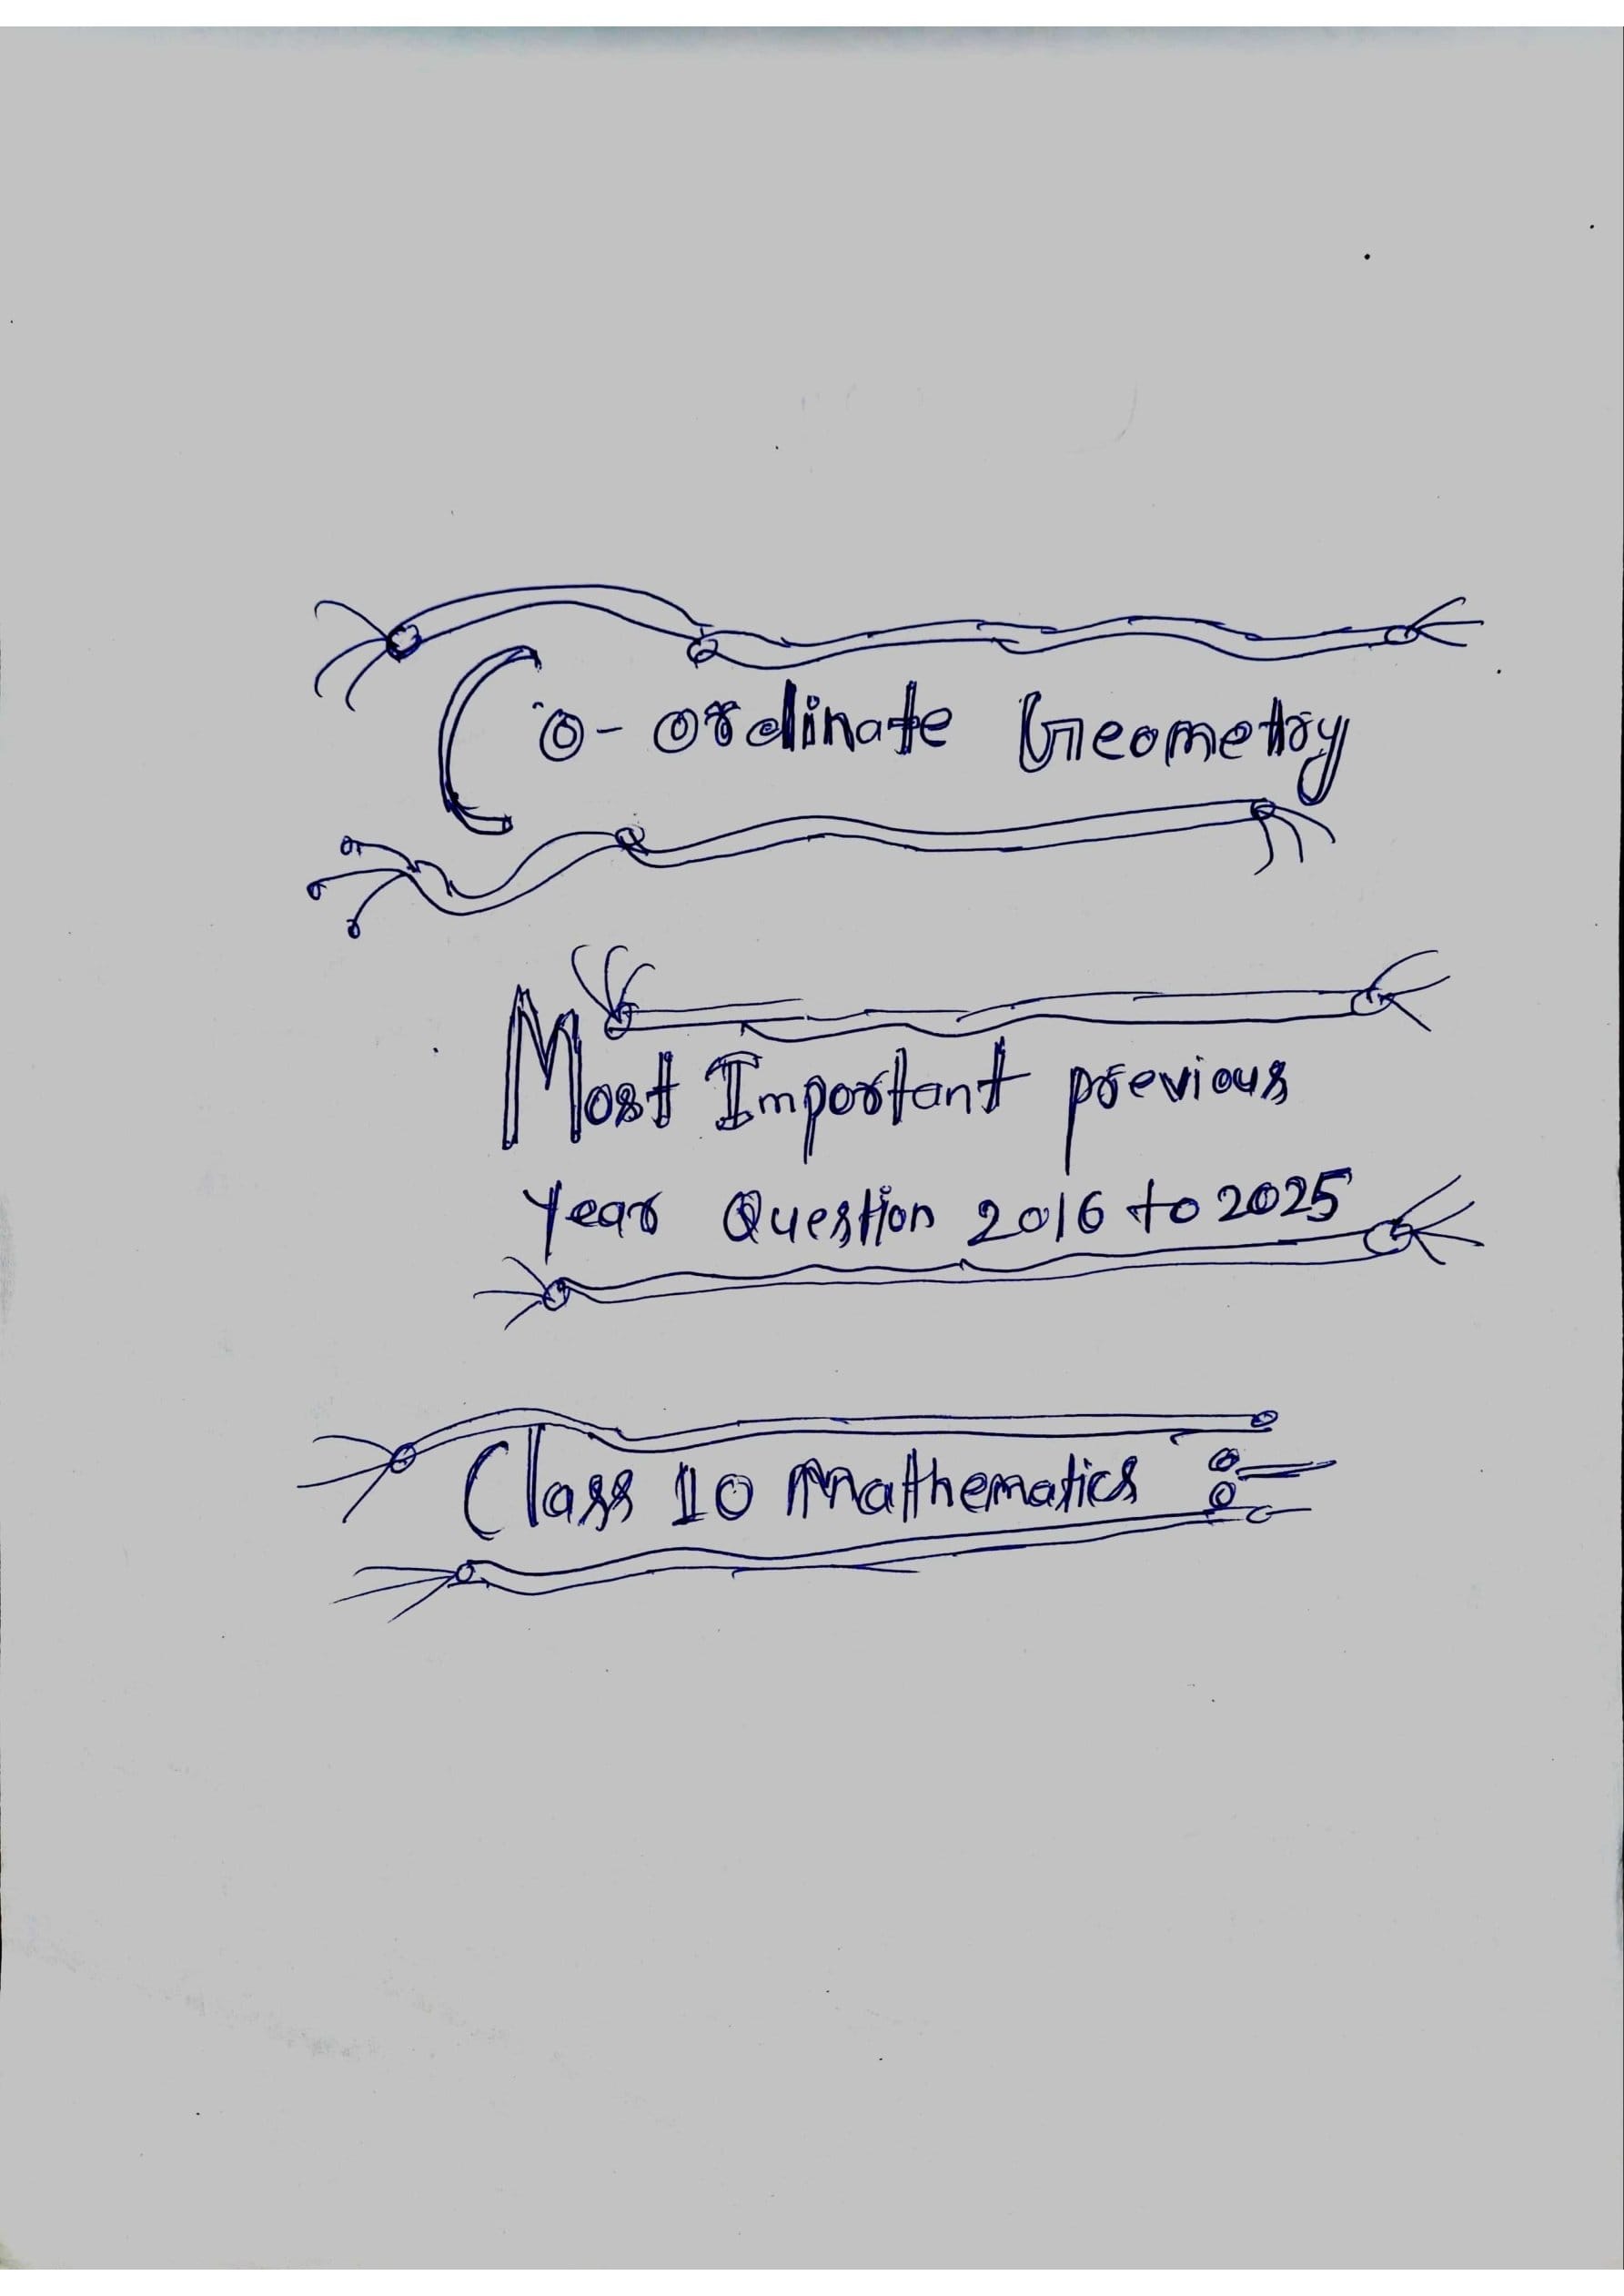 Co-ordinate Geometry
Most Important previous
Year Question 2016 to 2025
Class 10 Mathematics :-